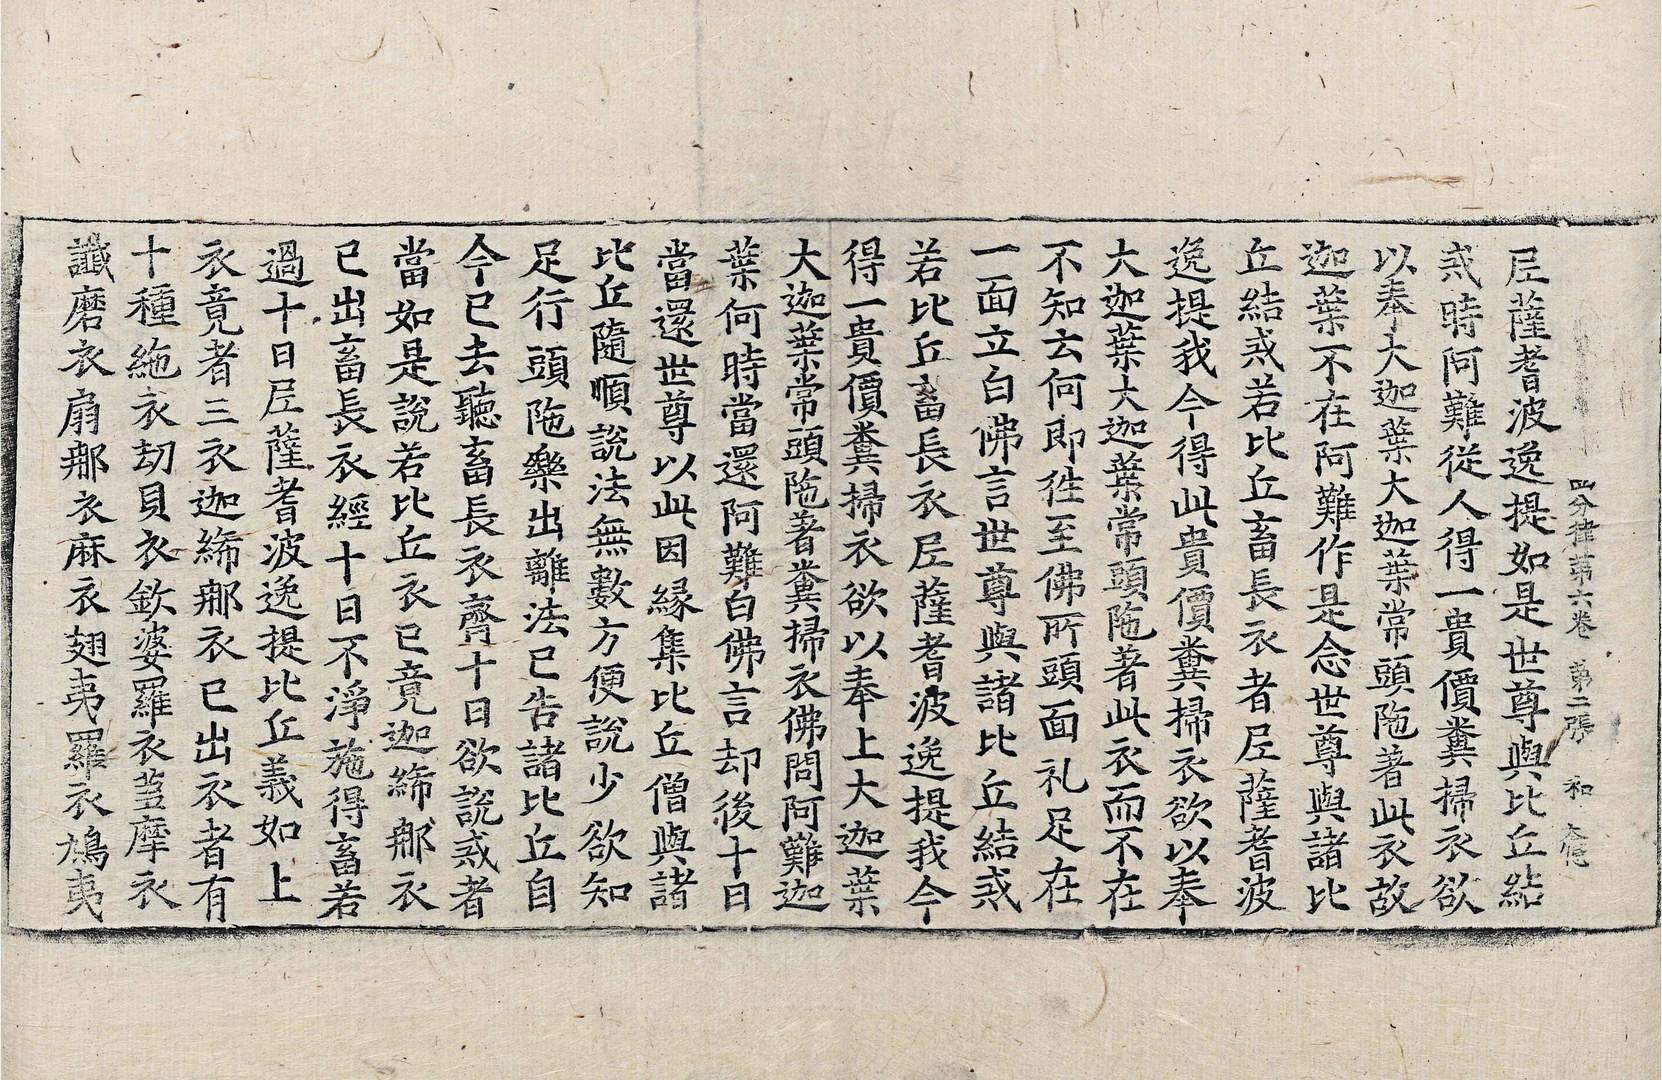 四分律第六卷 第二張 和
尼薩耆波逸提如是世尊與比丘結
戒時阿難從人得一貴價糞掃衣欲
以奉大迦葉大迦葉常頭陁著此衣故
迦葉不在阿難作是念世尊與諸比
丘結戒若比丘畜長衣者尼薩耆波
逸提我今得此貴價糞掃衣欲以奉
大迦葉大迦葉常頭陁著此衣而不在
不知云何即往至佛所頭面礼足在
一面立白佛言世尊與諸比丘結戒
若比丘畜長衣尼薩耆波逸提我今
得一貴價糞掃衣欲以奉上大迦葉
大迦葉常頭陁著糞掃衣佛問阿難迦
葉何時當還阿難白佛言却後十日
當還世尊以此因緣集比丘僧與諸
比丘隨順說法無數方便說少欲知
足行頭陁樂出離法已告諸比丘自
今已去聽畜長衣齊十日欲說戒者
當如是說若比丘衣已竟迦絺那衣
已出畜長衣經十日不淨施得畜若
過十日尼薩耆波逸提比丘義如上
衣竟者三衣迦絺那衣已出衣者有
十種絁衣劫貝衣欽婆羅衣芻摩衣
讖磨衣扇那衣麻衣翅夷羅衣鳩夷